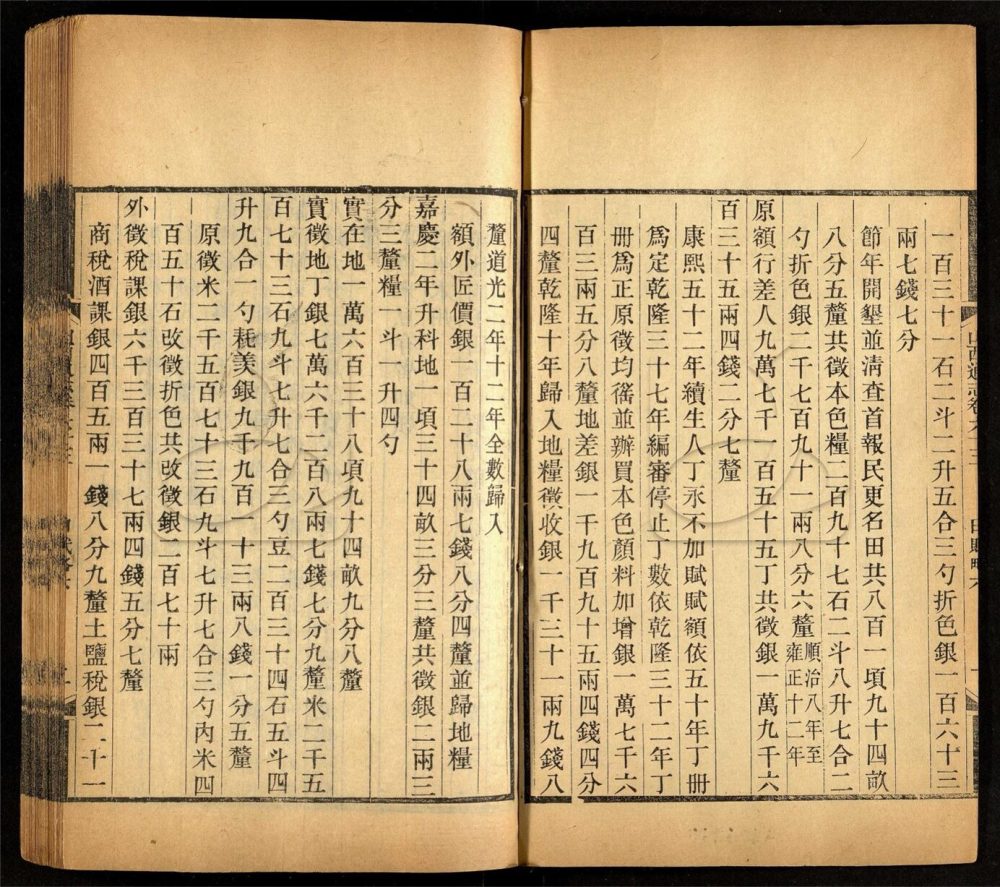 一百三十一石二斗二升五合三勺折色銀一百六十三
兩七錢七分
節年開墾並清查首報民更名田共八百一頃九十四畝
八分五釐共徵本色糧二百九十七石二斗八升七合二
勺折色銀二千七百九十一兩八分六釐順治八年至雍正十二年
原額行差人九萬七千一百五十五丁共徵銀一萬九千六
百三十五兩四錢二分七釐
康熙五十二年續生人丁永不加賦賦額依五十年丁冊
為定乾隆三十七年編審停止丁數依乾隆三十二年丁
冊為正原徵均徭並辦買本色顏料加增銀一萬七千六
百三兩五分八釐地差銀一千九百九十五兩四錢四分
四釐乾隆十年歸入地糧徵收銀一千三十一兩九錢八
釐道光二年十二年全數歸入
額外匠價銀一百二十八兩七錢八分四釐並歸地糧
嘉慶二年升科地一頃三十四畝三分三釐共徵銀二兩三
分三釐糧一斗一升四勺
實在地一萬六百三十八頃九十四畝九分八釐
實徵地丁銀七萬六千二百八兩七錢七分九釐米二千五
百七十三石九斗七升七合三勺豆二百三十四石五斗四
升九合一勺耗羨銀九千九百一十三兩八錢一分五釐
原徵米二千五百七十三石九斗七升七合三勺內米四
百五十石改徵折色共改徵銀二百七十兩
外徵稅課銀六千三百三十七兩四錢五分七釐
商稅酒課銀四百五兩一錢八分九釐土鹽稅銀二十一